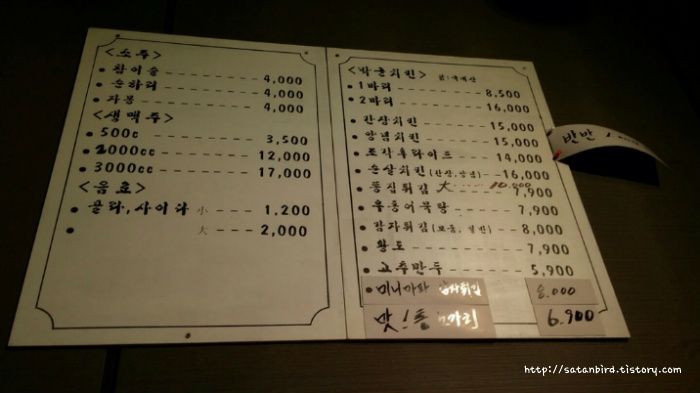 <소주>
• 참이슬 ------- 4,000
• 순하리 ------- 4,000
• 자몽 ------- 4,000
<생맥주>
• 500c ------- 3,500
• 2000cc ------- 12,000
• 3000cc ------- 17,000
<음료>
• 콜라,사이다 小 --- 1.200
• 大 --- 2,000
<박군치킨> 닭:국내산
• 1마리 ------- 8,500
• 2마리 ------- 16,000
• 간장치킨 ------- 15,000
• 양념치킨 ------- 15,000
• 조각후라이드 --- 14,000
• 순살치킨(간장,양념) --16,000
• 똥집튀김 大 --- 10.000 7,900
• 우동어묵탕 ------- 7,900
• 감자튀김(모듬, 일반) -- 8,000
• 황도 ------- 7,900
• 고추만두 ------- 5,900
• 미니마라 8.000
맛!통 6.900
반반
http://satanbird.tistory.com